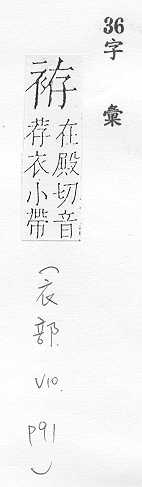 36
字彙
袸
在殿切音
荐衣小帶
(衣部. V10. P91)